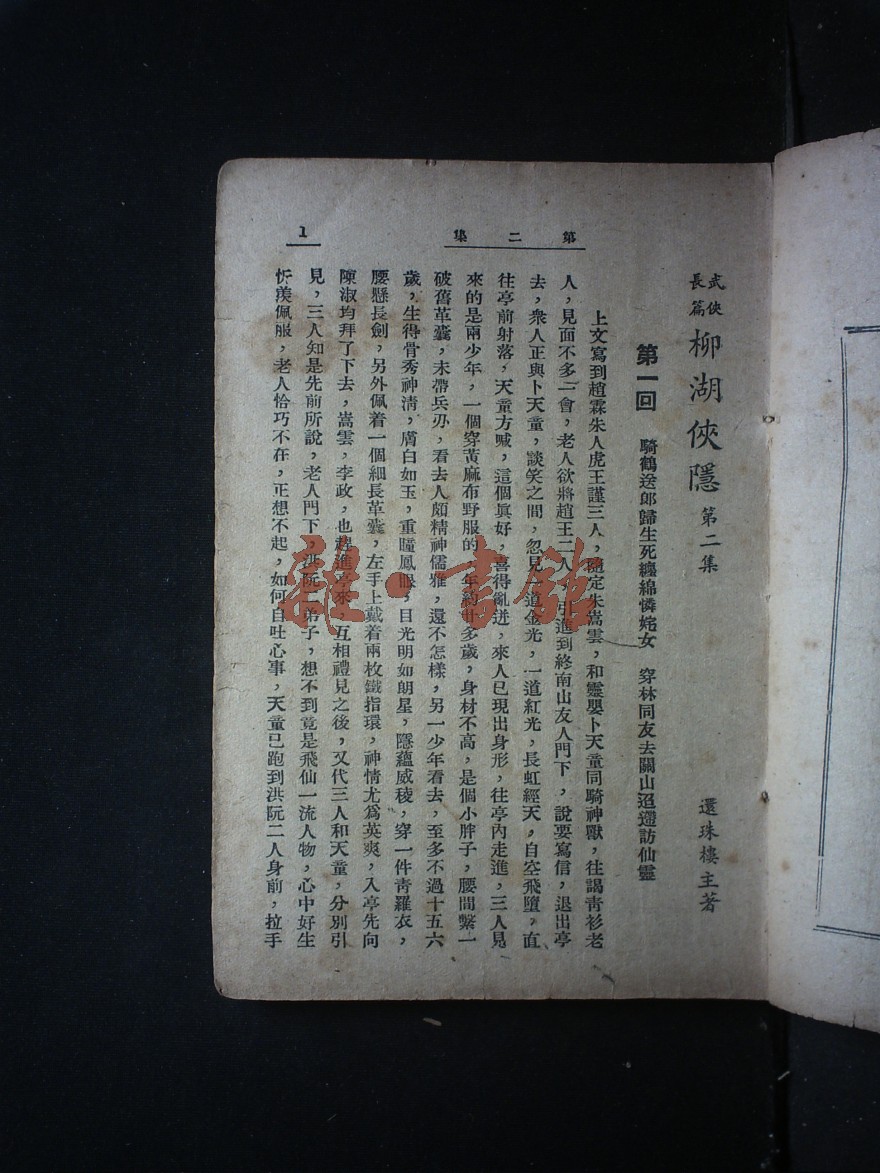 第二集
1
武俠長篇 柳湖俠隱 第二集 還珠樓主著
第一回 騎鶴送郎歸生死纏綿憐姹女 穿林同友去關山迢遞訪仙靈
上文寫到趙霖朱人虎王謹三人，隨定朱嵩雲，和靈嬰卜天童同騎神獸，往謁青衫老
人，見面不多一會，老人欲將趙王二人，引進到終南山友人門下，說要寫信，退出亭
去，衆人正與卜天童，談笑之間，忽見一道金光，一道紅光，長虹經天，自空飛墮，直
往亭前射落，天童方喊，這個眞好，喜得亂迸，來人已現出身形，往亭內走進，三人見
來的是兩少年，一個穿黃麻布野服的，年約廿多歲，身材不高，是個小胖子，腰間繫一
破舊革囊，未帶兵刃，看去人頗精神儒雅，還不怎樣，另一少年看去，至多不過十五六
歲，生得骨秀神清，膚白如玉，重瞳鳳眼，目光明如朗星，隱蘊威稜，穿一件青羅衣，
腰懸長劍，另外佩着一個細長革囊，左手上戴着兩枚鐵指環，神情尤爲英爽，入亭先向
陳淑均拜了下去，嵩雲，李政，也趕進亭來，互相禮見之後，又代三人和天童，分別引
見，三人知是先前所說，老人門下，洪阮二弟子，想不到竟是飛仙一流人物，心中好生
忻羡佩服，老人恰巧不在，正想不起，如何自吐心事，天童已跑到洪阮二人身前，拉手
雜·書館